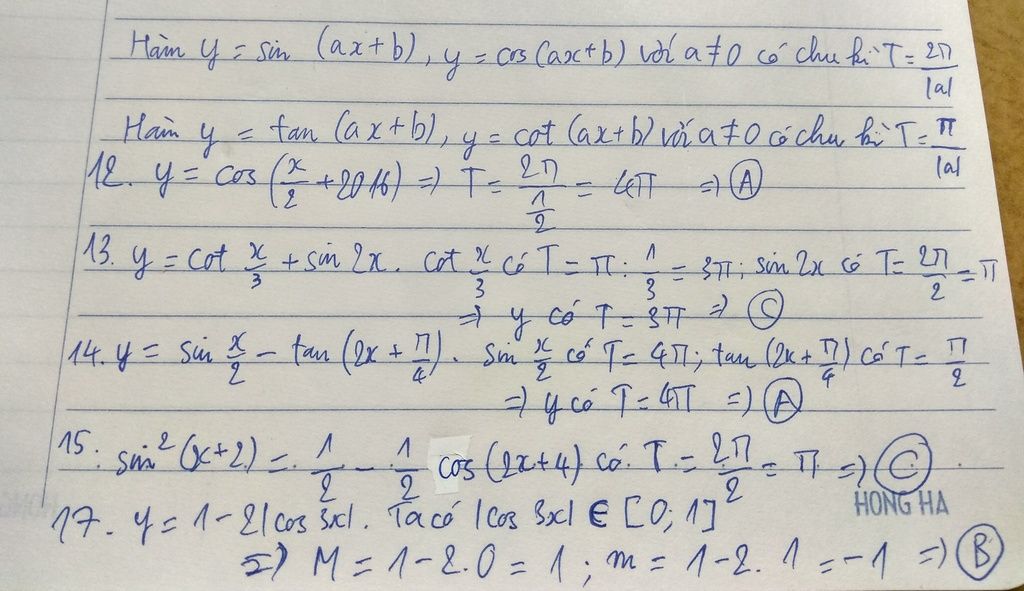 Hàm y = sin (ax+b), y = cos(ax+b) với a≠0 có chu kì T = 2π/|a|
Hàm y = tan (ax+b), y = cot (ax+b) với a≠0 có chu kì T = π/|a|
12. y = cos (x/2 + 2016) => T = 2π/(1/2) = 4π => A
13. y = cot x/3 + sin 2x. cot x/3 có T = π : 1/3 = 3π; sin 2x có T = 2π/2 = π
=> y có T = 3π => C
14. y = sin x/2 - tan (2x + π/4). sin x/2 có T = 4π; tan (2x + π/4) có T = π/2
=> y có T = 4π => A
15. sin² (x+2) = 1/2 - 1/2 cos (2x+4) có T = 2π/2 = π => C
HONG HA
17. y = 1-2|cos 3x|. Ta có |cos 3x| ∈ [0; 1]
=> M = 1-2.0 = 1; m = 1-2.1 = -1 => B